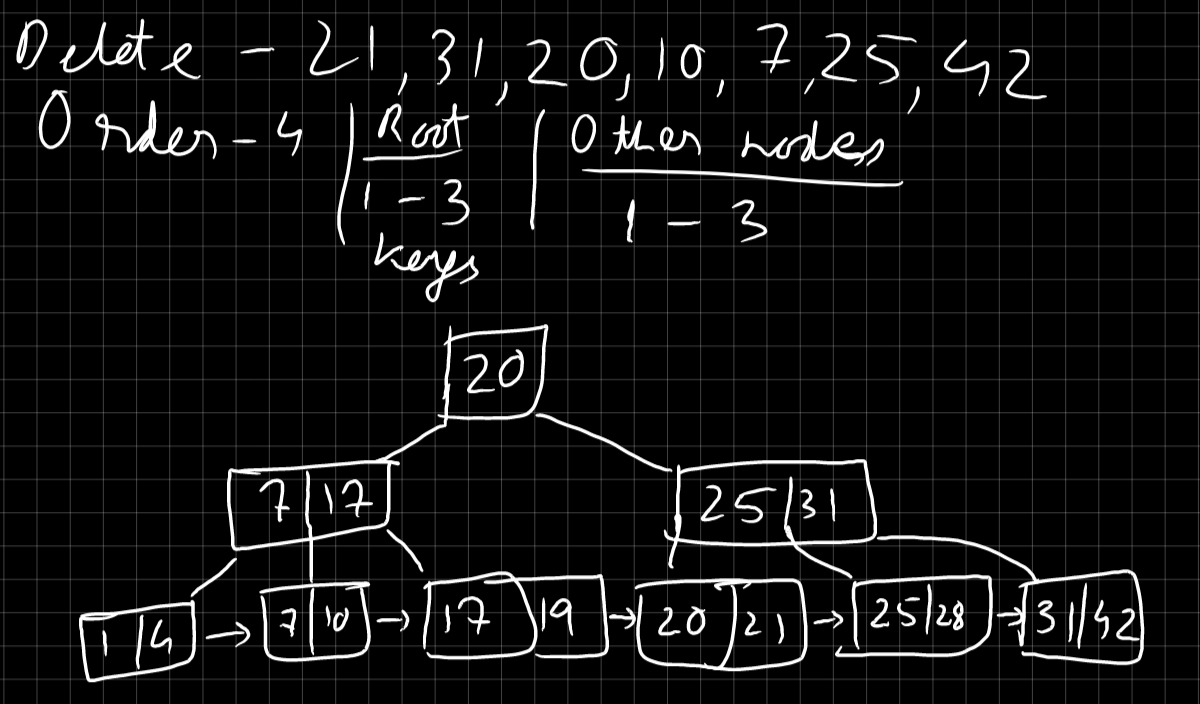 Delete - 21, 31, 20, 10, 7, 25, 42
Order - 4 | Root | Other nodes
1 - 3 1 - 3
keys
20
7 | 17 25 | 31
1 | 4 → 7 | 10 → 17 | 19 → 20 | 21 → 25 | 28 → 31 | 42